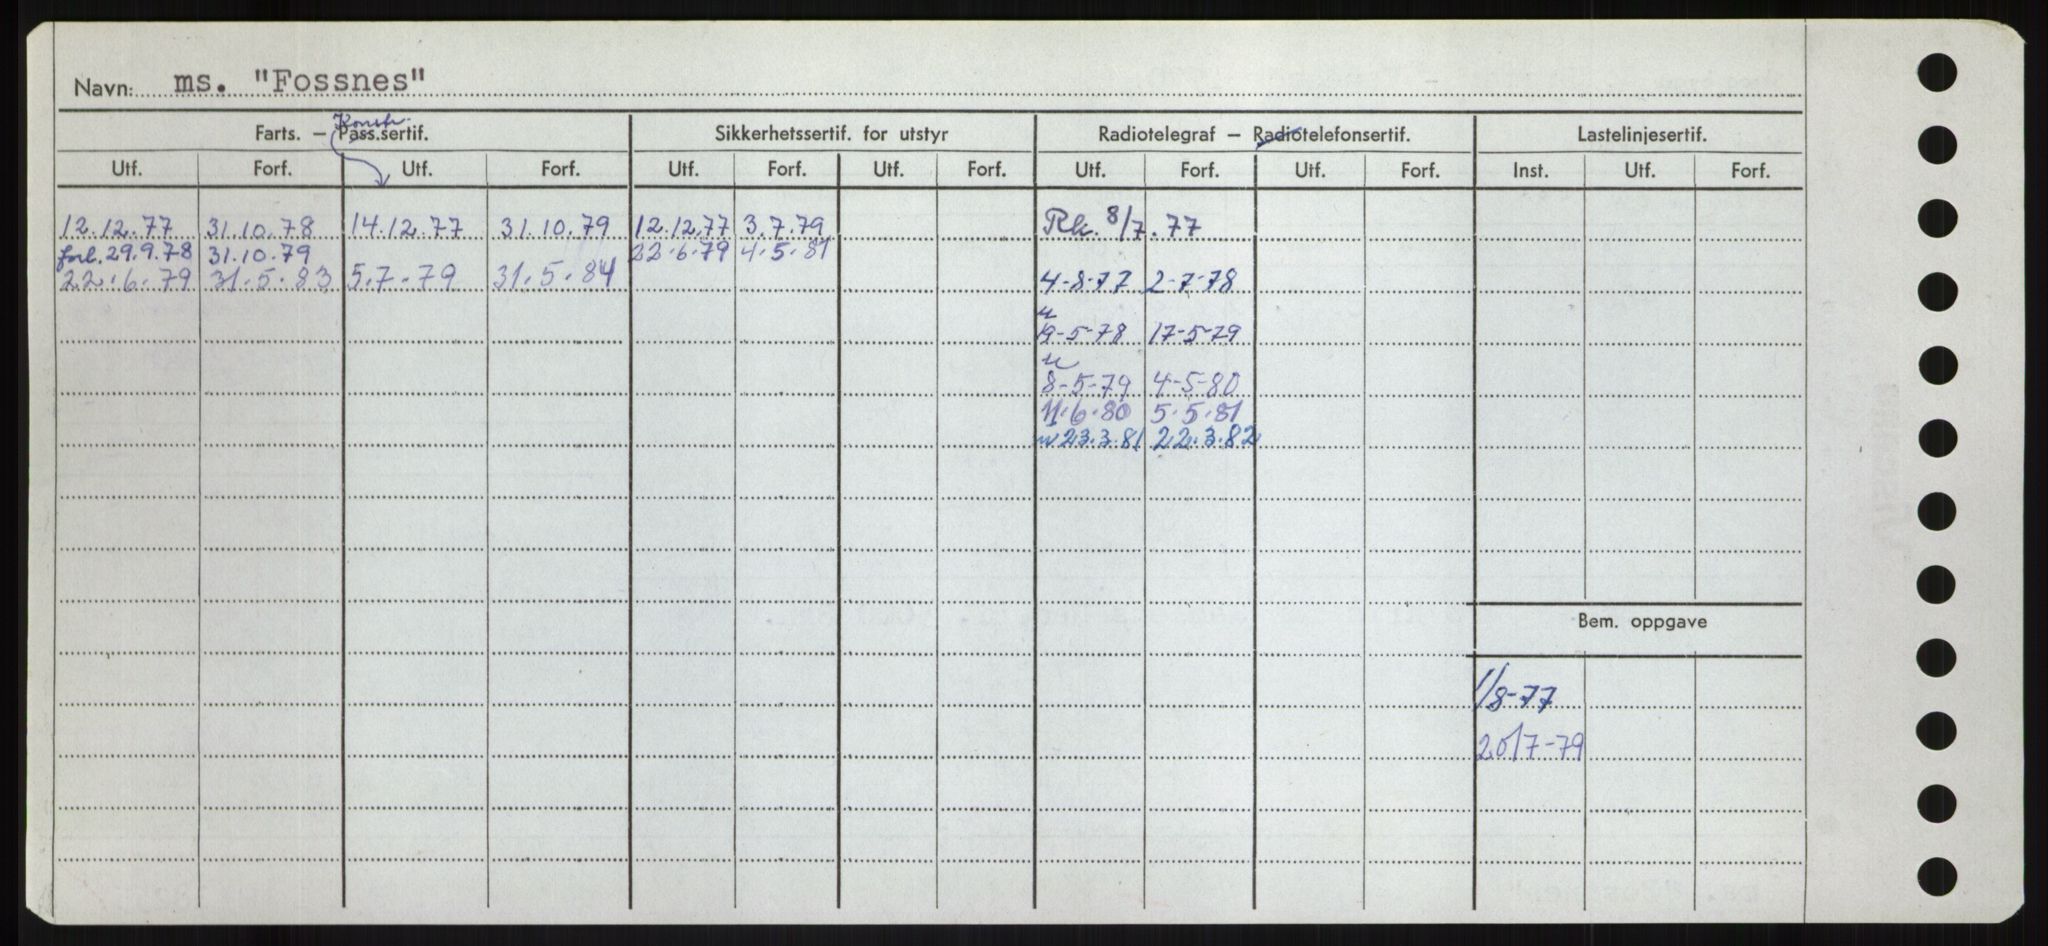 Navn: ms. "Fossnes"
Konstr.
Farts. – Pass.sertif. Sikkerhetssertif. for utstyr Radiotelegraf – Radiotelefonsertif. Lastelinjesertif.
Utf. Forf. Utf. Forf. Utf. Forf. Utf. Forf. Utf. Forf. Utf. Forf. Inst. Utf. Forf.
12.12.77 31.10.78 14.12.77 31.10.79 12.12.77 3.7.79 Rk. 8/7.77
forl. 29.9.78 31.10.79 22.6.79 4.5.81
22.6.79 31.5.83 5.7.79 31.5.84 4-8-77 2-7-78
u
19-5-78 17-5-79
u
8-5-79 4-5-80
11.6.80 5.5.81
u 23.3.81 22.3.82
Bem. oppgave
1/8-77
20/7-79